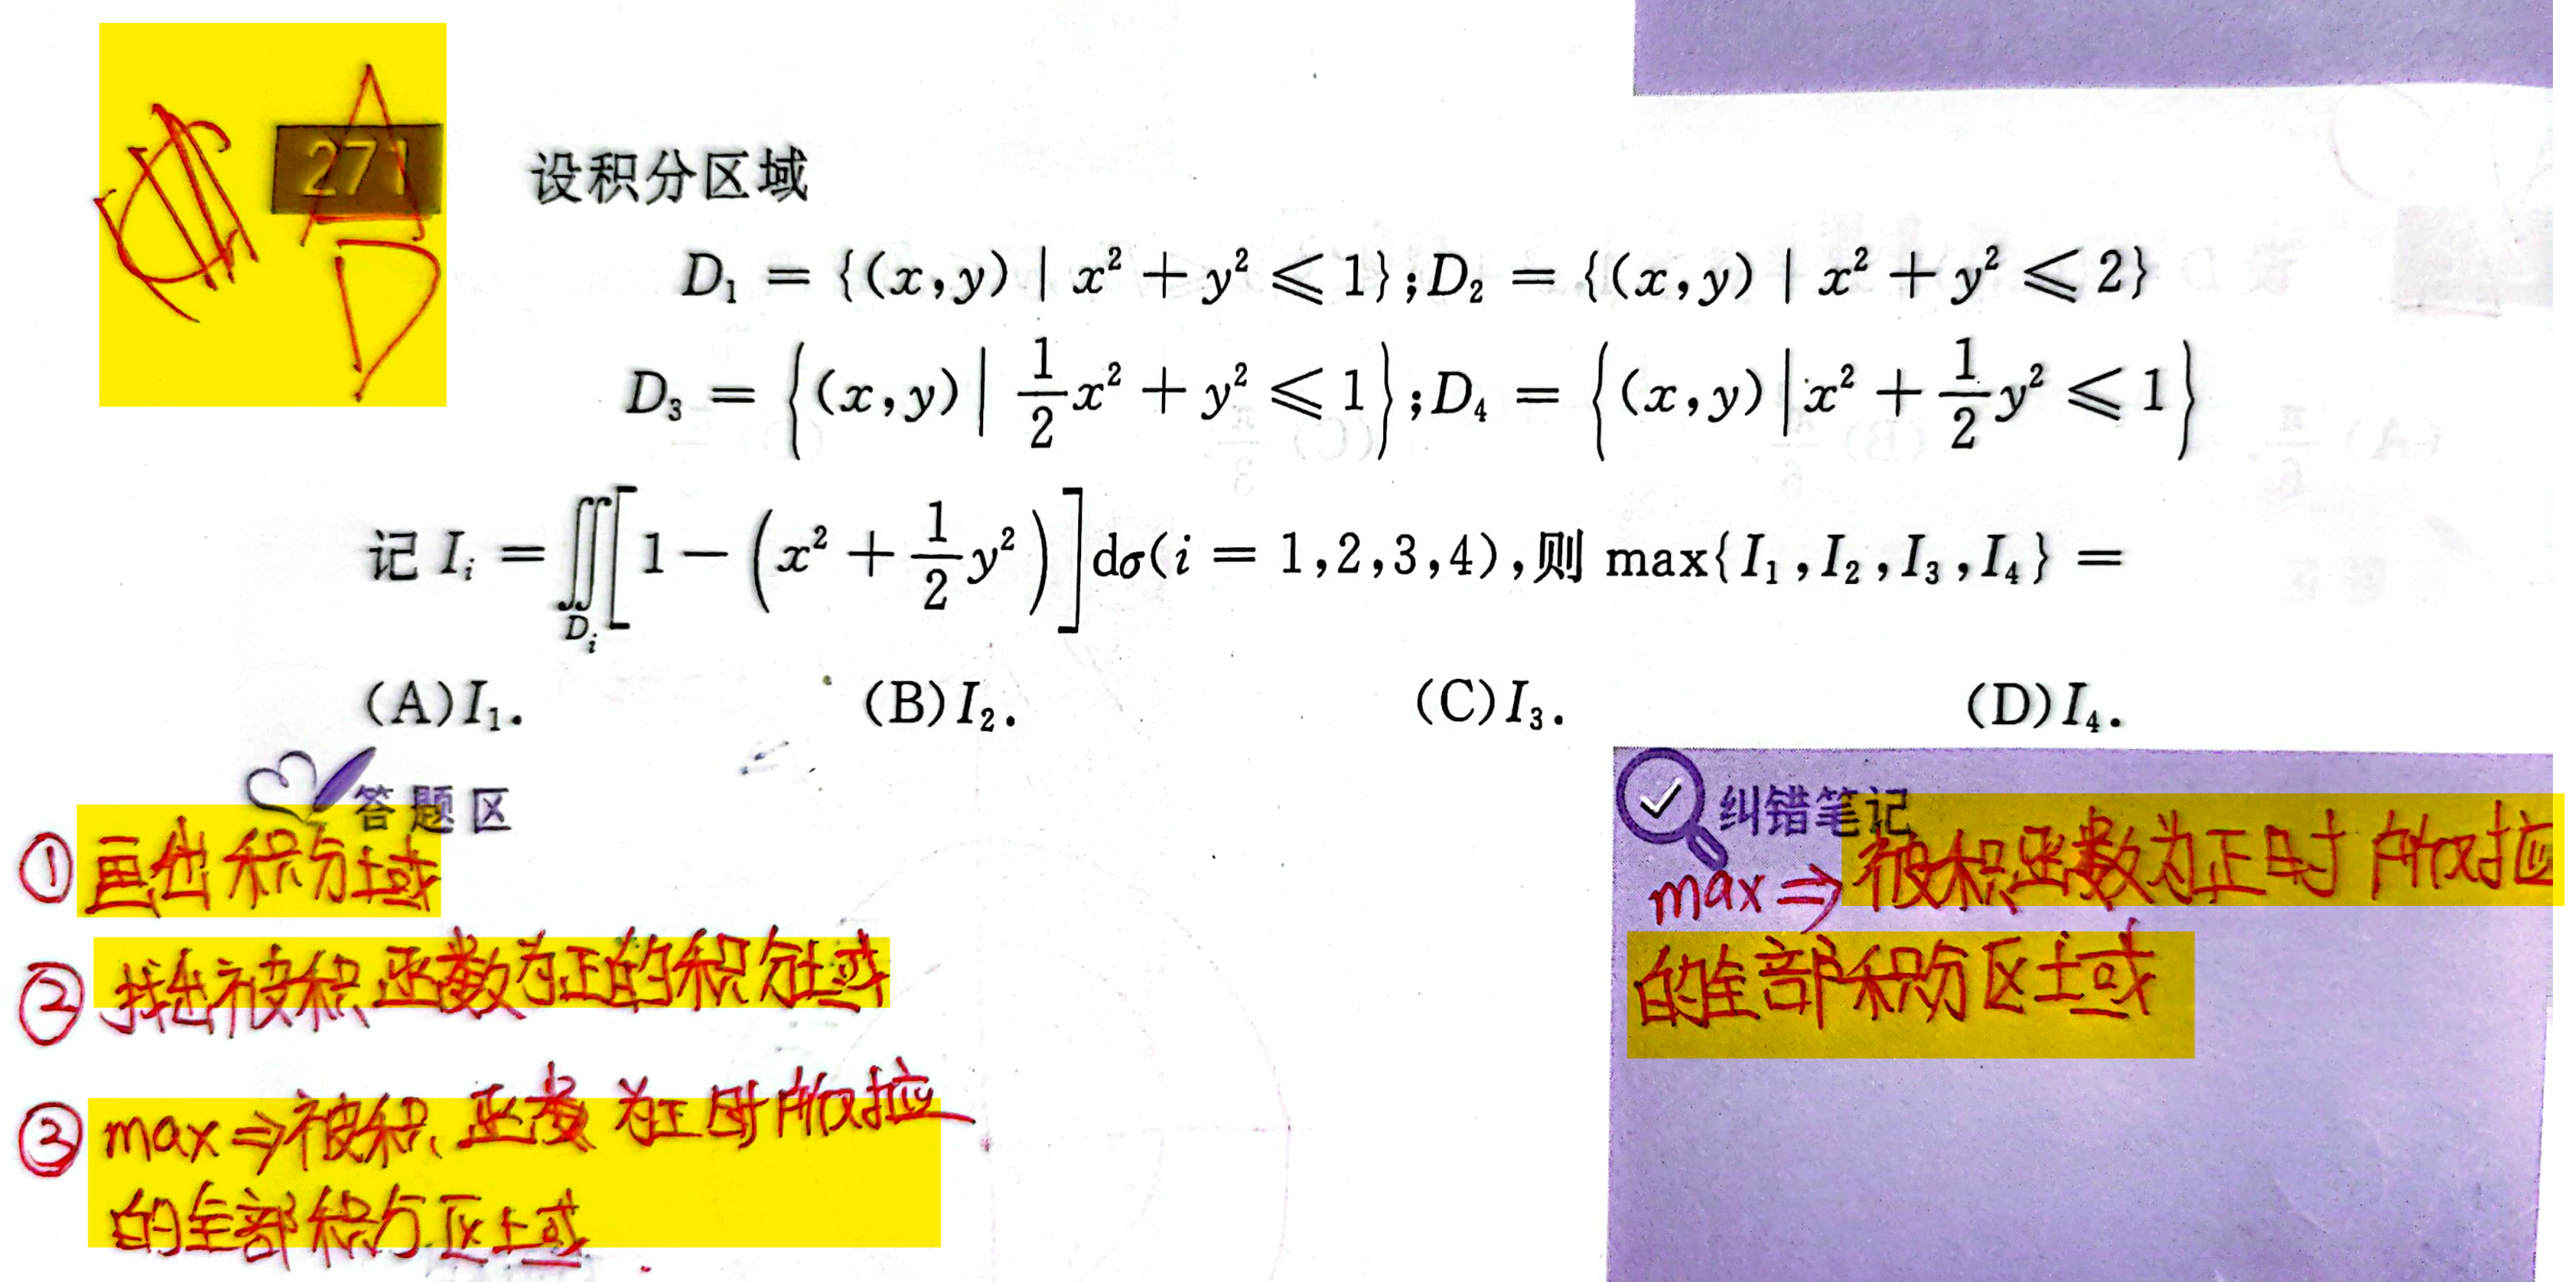 271
D
设积分区域
D₁ = {(x,y) | x² + y² ⩽ 1};D₂ = {(x,y) | x² + y² ⩽ 2}
D₃ = {(x,y) | 1/2 x² + y² ⩽ 1};D₄ = {(x,y) | x² + 1/2 y² ⩽ 1}
记 Iᵢ = ∬_{Dᵢ} [1 − (x² + 1/2 y²)] dσ(i = 1,2,3,4),则 max{I₁,I₂,I₃,I₄} =
(A)I₁. (B)I₂. (C)I₃. (D)I₄.
答题区
① 画出积分域
② 找出被积函数为正的积分域
③ max ⇒ 被积函数为正时所对应
的全部积分区域
纠错笔记
max ⇒ 被积函数为正时所对应
的全部积分区域